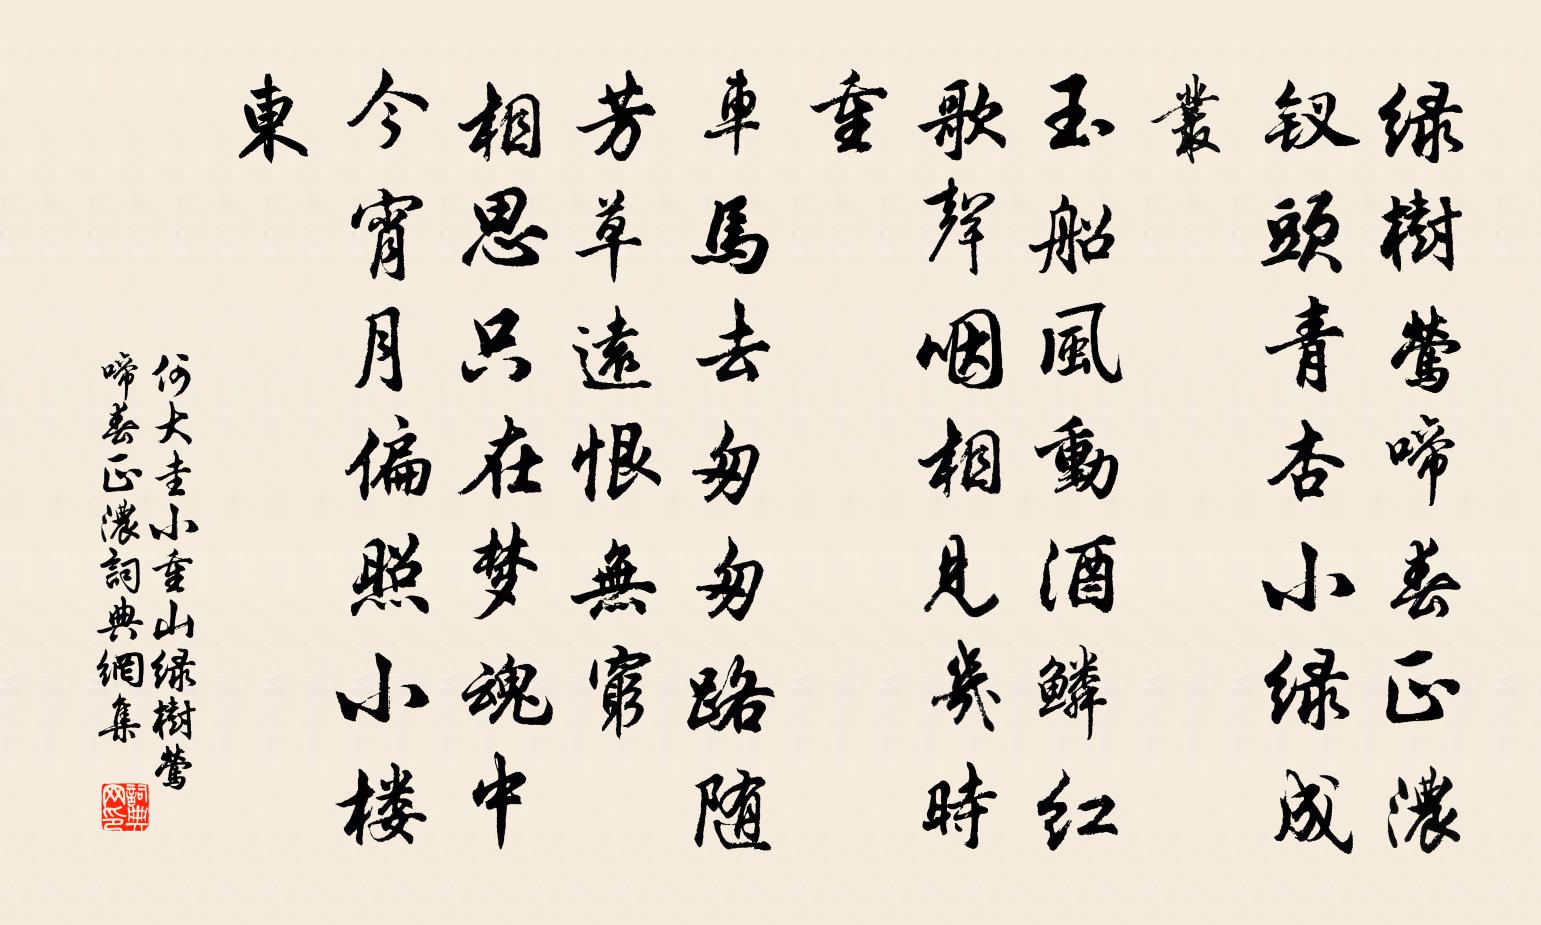 绿樹鶯啼春正濃
钗頭青杏小绿成
叢
玉船風動酒鳞红
歌聲咽相見幾時
重
車馬去匆匆路随
芳草遠恨無窮
相思只在梦魂中
今宵月偏照小楼
東
何大圭小重山绿樹鶯
啼春正濃詞典網集
詞典
网印